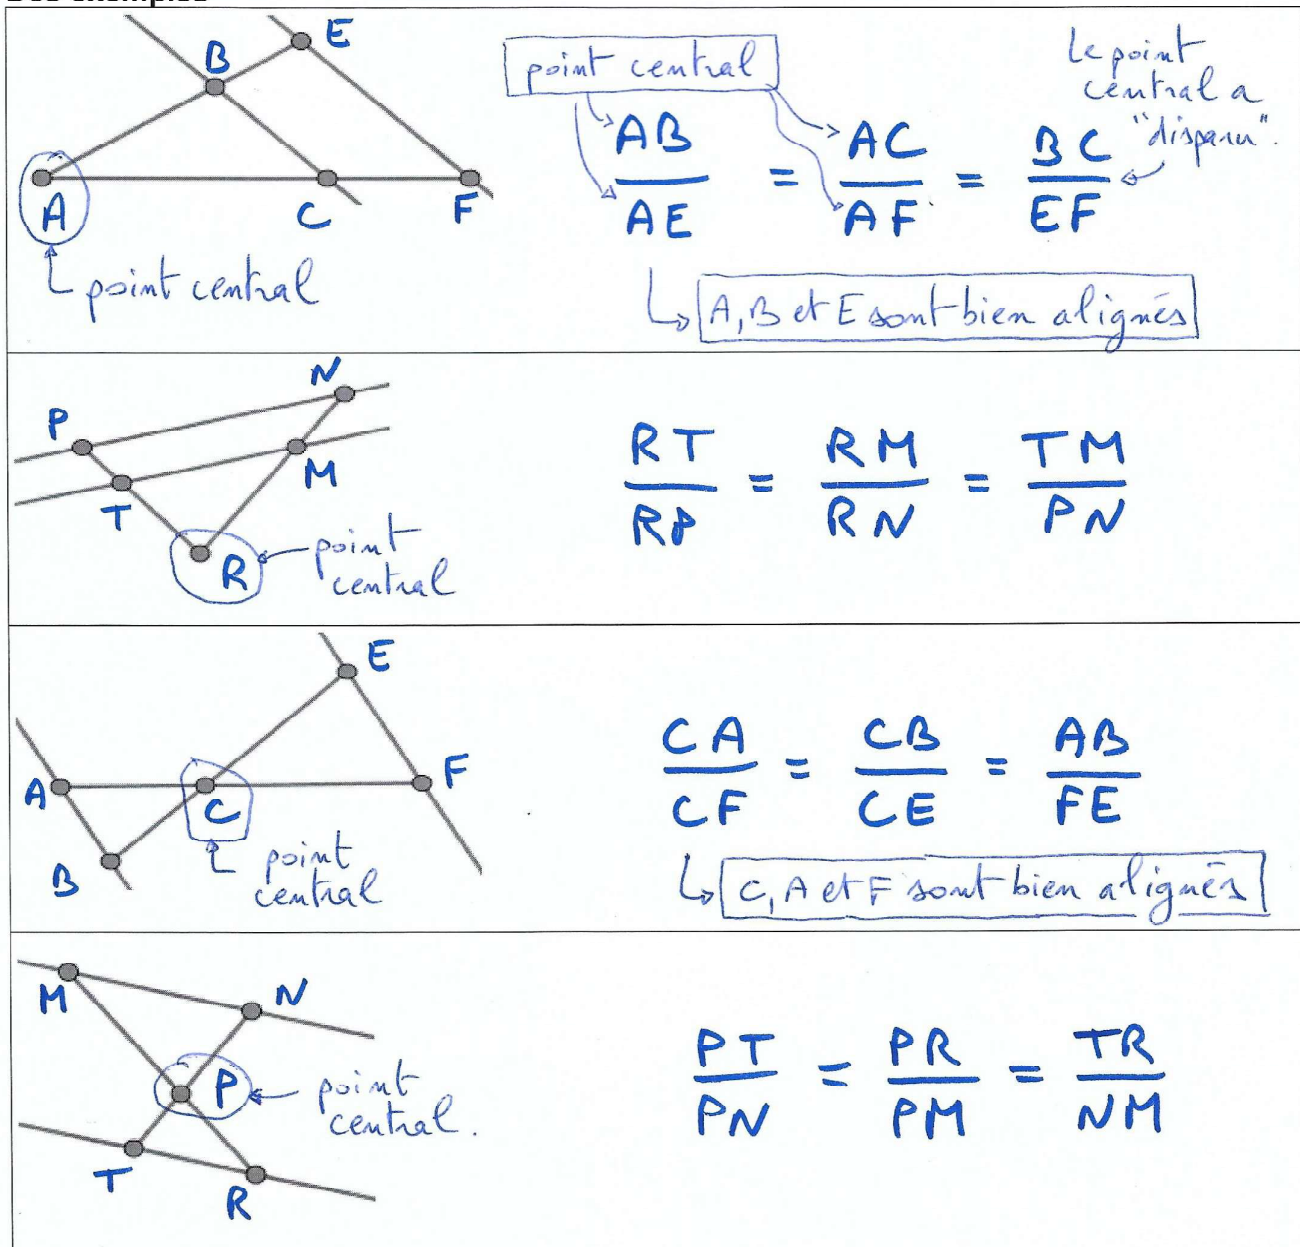 Des exemples
B
E
A
C
F
point central
point central
AB/AE = AC/AF = BC/EF
Le point
central a
"disparu".
A, B et E sont bien alignés
N
P
M
T
R
point
central
RT/RP = RM/RN = TM/PN
E
A
C
F
B
point
central
CA/CF = CB/CE = AB/FE
C, A et F sont bien alignés
M
N
P
point
central.
T
R
PT/PN = PR/PM = TR/NM